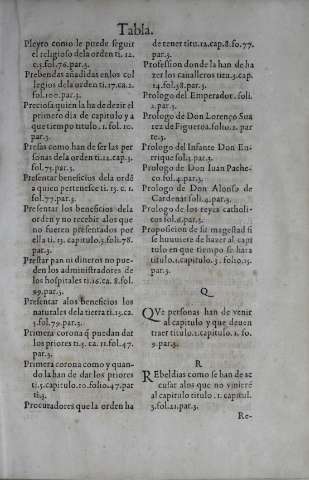 Tabla.
Pleyto como le puede seguir
el religioso dela orden ti. 12.
c.3.fol.76.par.3.
Prebendas añadidas enlos col
legios dela orden ti.17.ca.2.
fol.100.par.3.
Preciosa quien la ha de dezir el
primero dia de capitulo y a
que tiempo titulo. 1. fol. 10.
par.3.
Presas como han de ser las per
sonas dela orden ti.12.cap.3.
fol.75.par.3.
Presentar beneficios dela ordẽ
a quien pertenesce ti. 13. c. 1.
fol.77.par.3.
Presentar los beneficios dela
orden y no recebir alos que
no fueren presentados por
ella ti. 13. capitulo.3.foli.78.
par.3.
Prestar pan ni dineros no pue-
den los administradores de
los hospitales ti.16.ca.8.fol.
99.par.3.
Presentar alos beneficios los
naturales dela tierra ti.13.ca.
3.fol.79.par.3.
Primera corona q̃ puedan dat
los priores ti.5. ca. 11.fol.47.
par.3.
Primera corona como y quan-
do la han de dar los priores
ti.5.capitulo.10.folio.47.par
ti.3.
Procuradores que la orden ha
de tener titu.12.cap.8.fo.77.
par.3.
Profession donde la han de ha
zer los caualleros titu.3.cap.
14.fol.38.par.3.
Prologo del Emperador. foli.
2.par.3.
Prologo de Don Lorenço Sua
rez de Figueroa.folio.2. par
te.3.
Prologo del Infante Don En-
rrique fol.3.par.3.
Prologo de Don Iuan Pache-
co.fol.4.par.3.
Prologo de Don Alonso de
Cardenas foli.4.par.3.
Prologo de los reyes catholi-
cos fol.6.par.3.
Proposicion de su magestad si
se huuiere de hazer al capi
tulo en que tiempo se hara
titulo.1.capitulo. 3. folio.13.
par.3.
Q
QVe personas han de venir
al capitulo y que deuen
traer titulo.1.capitulo. 1. fo.
9.par.3.
R
REbeldias como se han de ac
cusar alos que no vinierẽ
al capitulo titulo . 1. capitul.
3.fol.21.par.3.
Re-